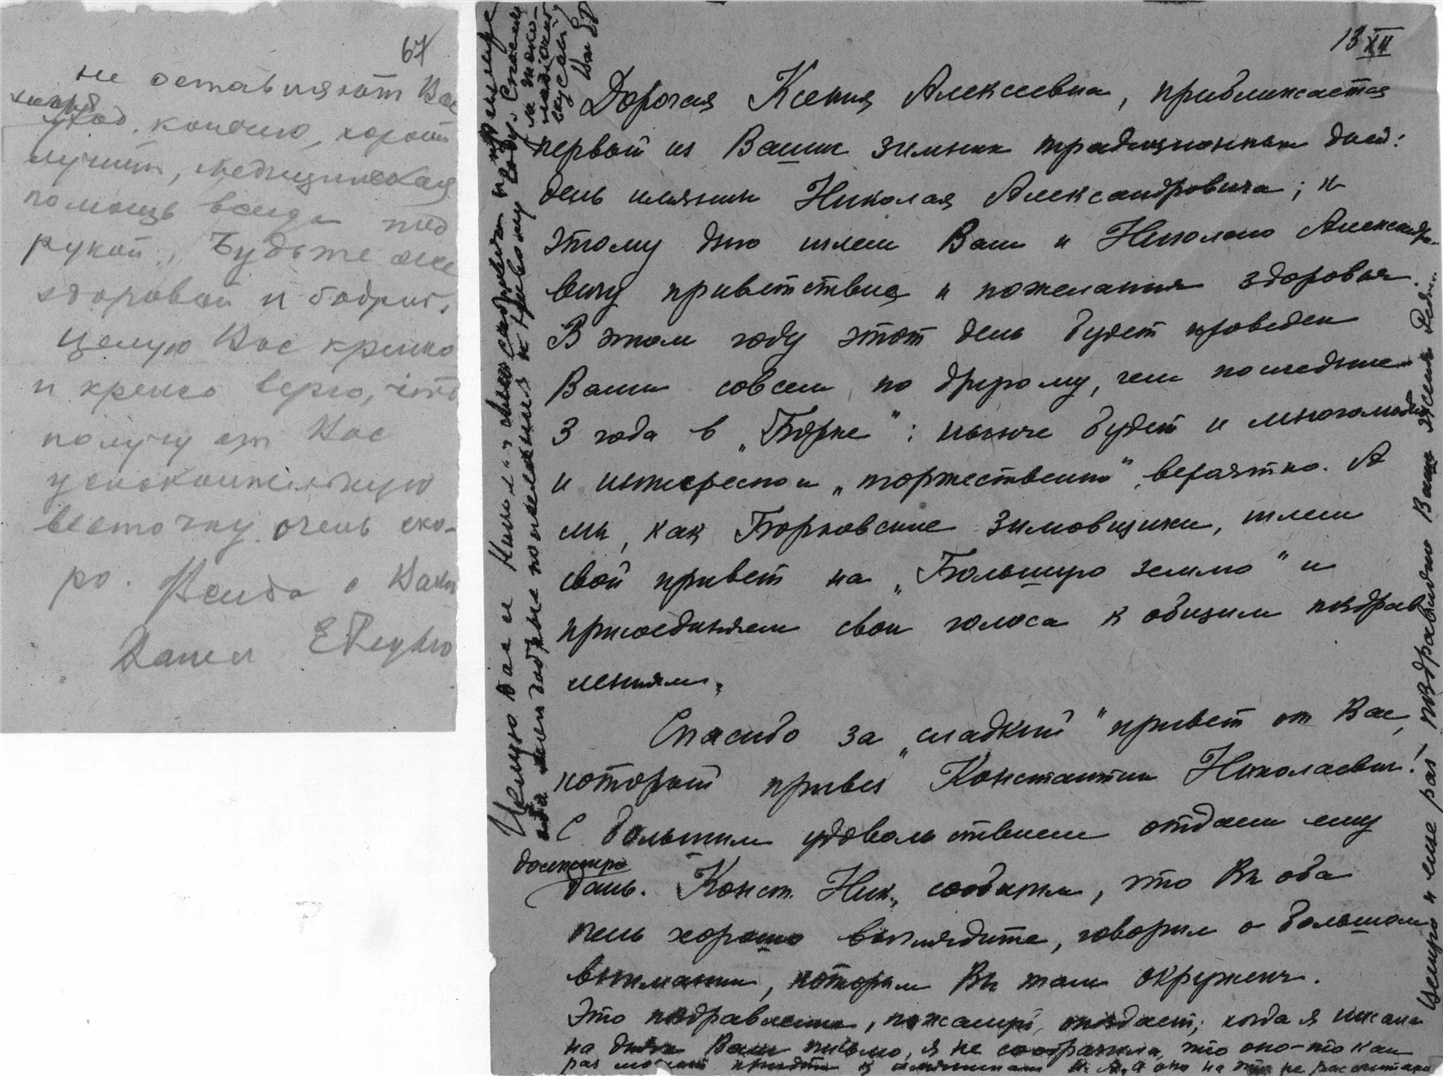 67
не оставляют Вас
уход, конечно, хорош
лучший, медицинская
помощь всегда под
рукой. Будьте же
здоровой и бодрой.
Целую Вас крепко
и крепко верю, что
получу от Вас
успокоительную
весточку очень ско-
ро. Всегда с Вами
Ваша Е
13 XII
Дорогая Ксения Алексеевна, приближается
первый из Ваших зимних традиционных дней:
день имянин Николая Александровича; к
этому дню шлем Вам и Николаю Александро-
вичу приветствия и пожелания здоровья.
В этом году этот день будет проведен
Вами совсем по другому, чем последние
3 года в „Борке": нынче будет и многолюдно
и интересно и „торжественно", вероятно. А
мы, как Борковские зимовщики, шлем
свой привет на „Большую землю" и
присоединяем свои голоса к общим поздрав
лениям.
Спасибо за „сладкий" привет от Вас,
который привез Константин Николаевич.
С большим удовольствием отдаем ему
должную
дань. Конст. Ник. сообщил, что Вы оба
очень хорошо выглядите, говорил о большом
внимании, которым Вы там окружены.
Это поздравление, пожалуй, опоздает; когда я писала
на днях Вам письмо, я не сообразила, что оно-то как
раз может придти к имянинам Н. А., а оно на это не рассчитано
Целую Вас и
добрые пожелания к Новому году. Спасибо
Целую и еще раз поздравляю Ваша